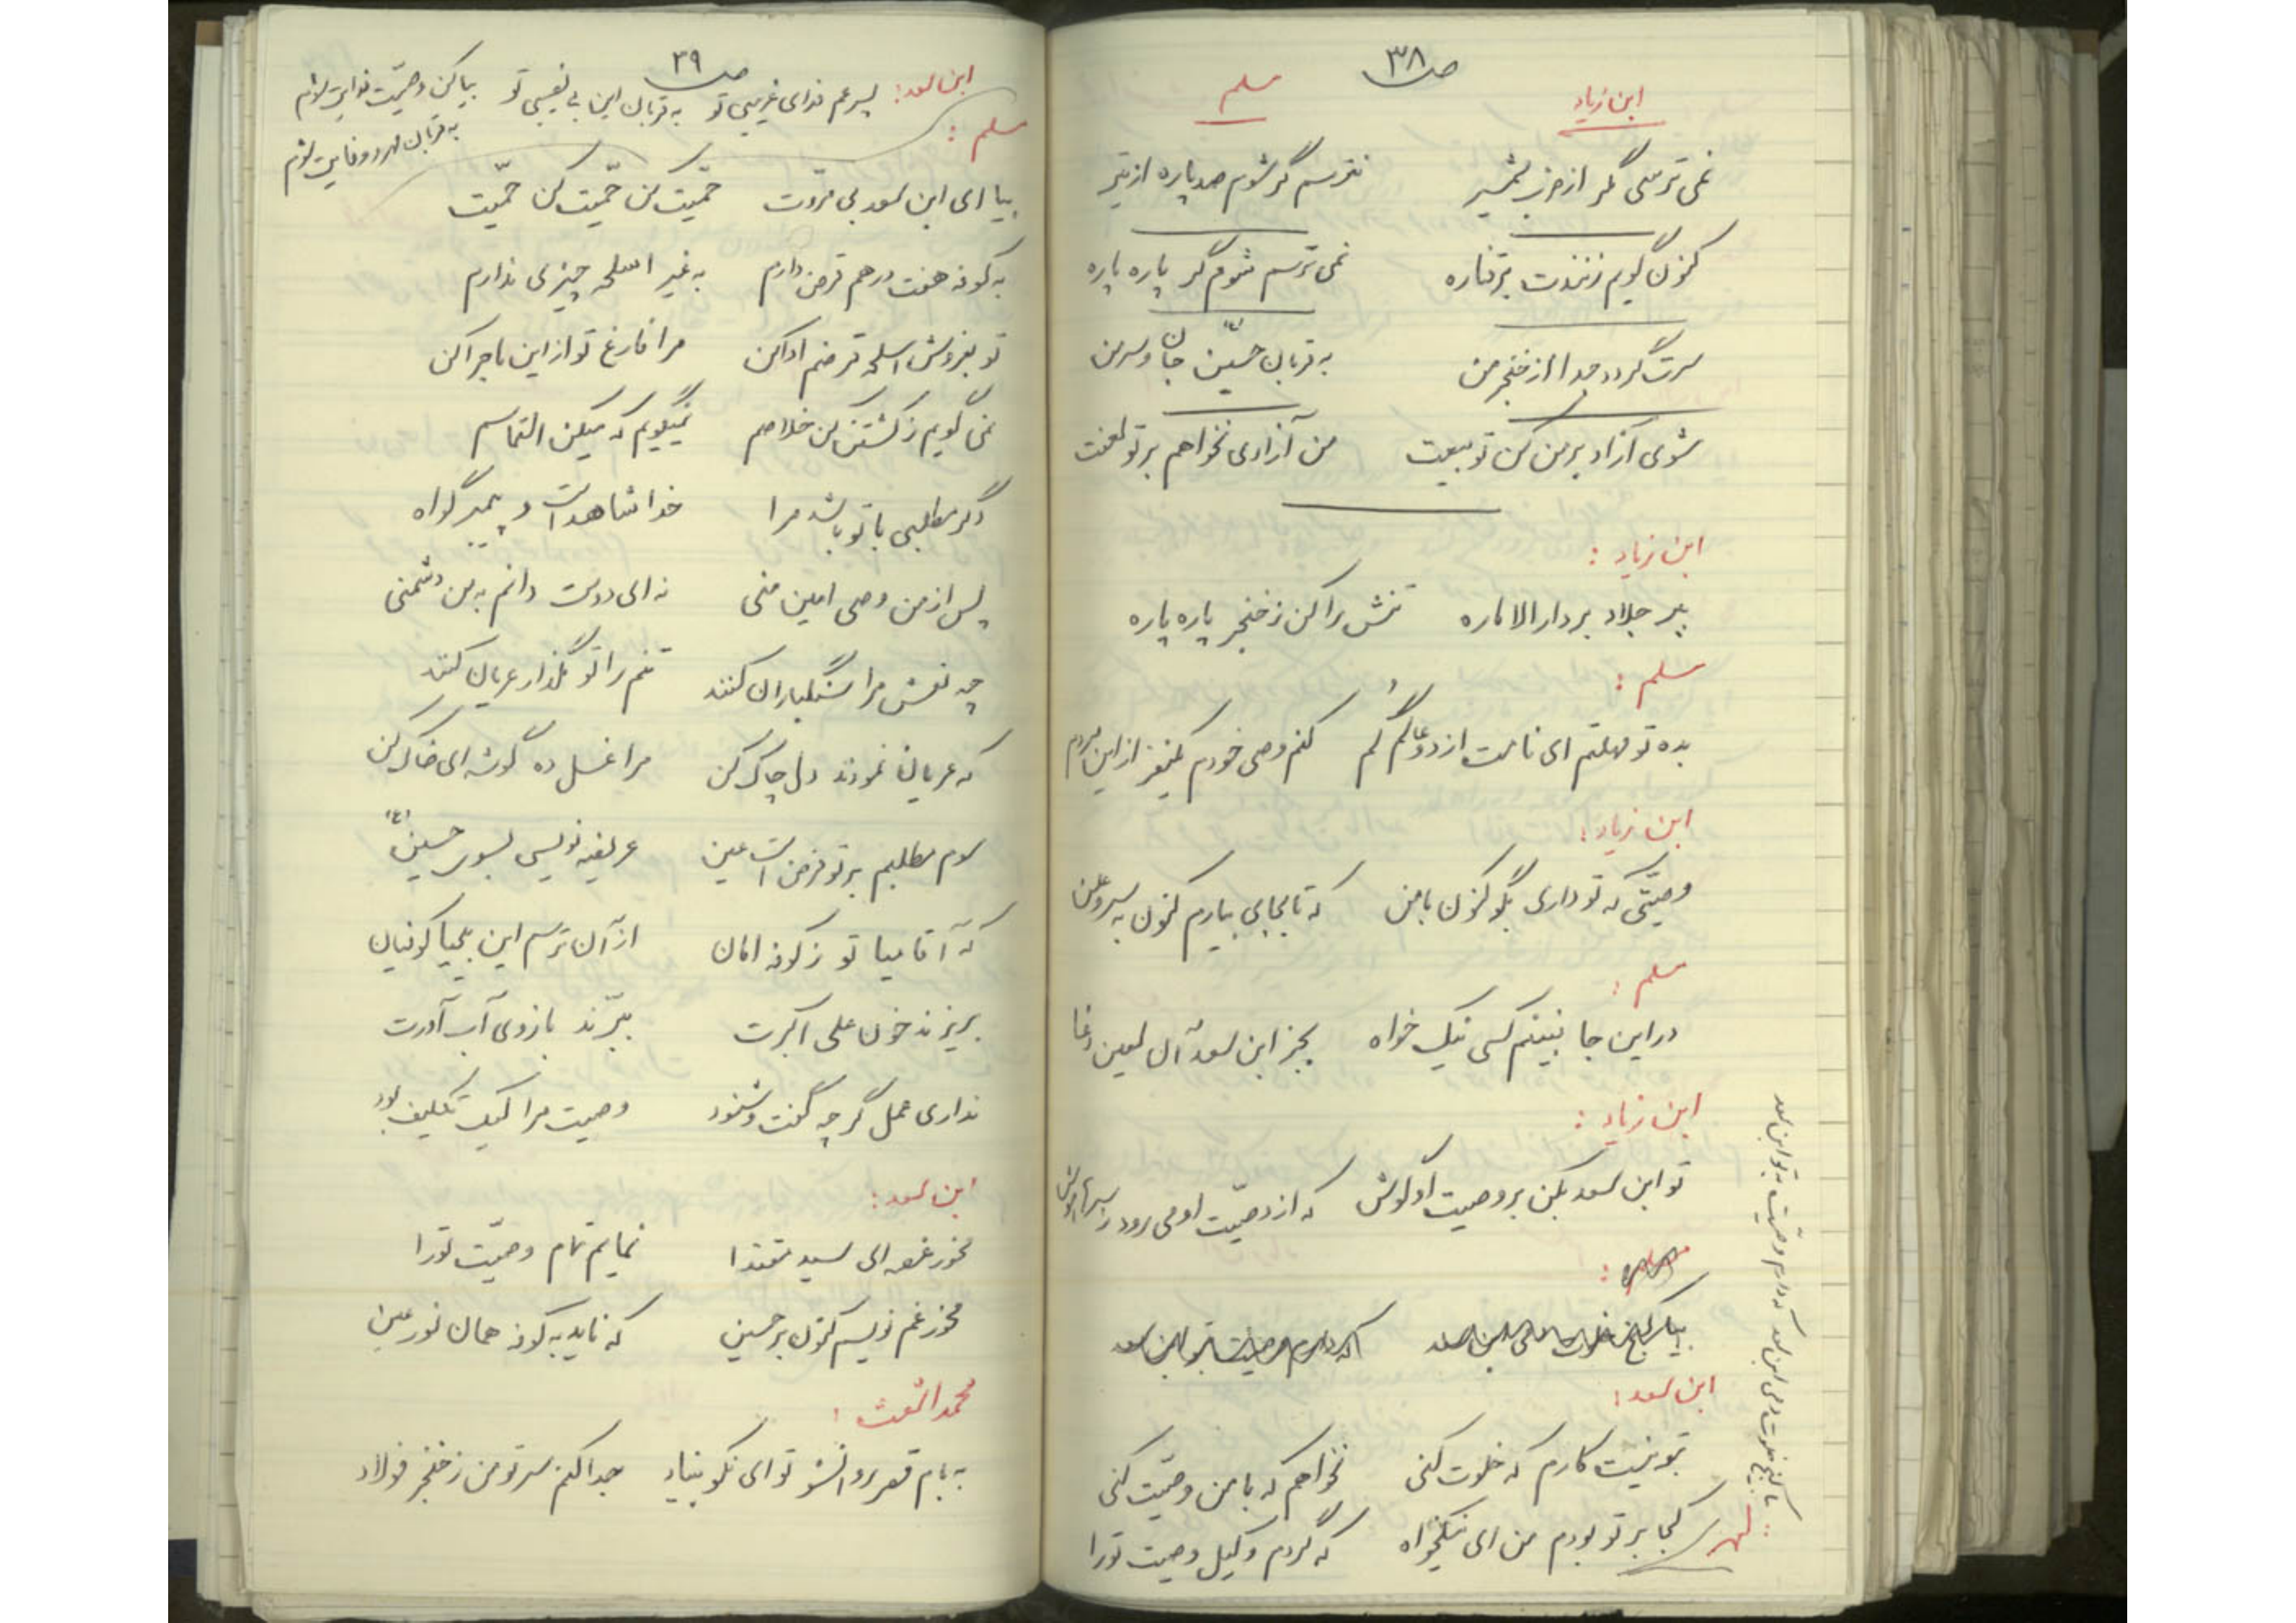 ص ۳۸
ابن زیاد مسلم
نمی ترسی مگر از ضرب شمشیر نترسم گر شوم صد پاره از تیر
کنون گویم زنندت بر قناره نمی ترسم شوم گر پاره پاره
سرت گردد جدا از خنجر من به قربان حسین (ع) جان و سر من
شوی آزاد بر من کن تو بیعت من آزادی نخواهم بر تو لعنت
ابن زیاد :
ببر جلاد بر دارالاماره تنش را کن ز خنجر پاره پاره
مسلم :
بده تو مهلتم ای نامت از دو عالم گم کنم وصی خودم یکنفر از این مردم
ابن زیاد :
وصیتی که تو داری بگو کنون با من که تا بجای بیارم کنون به سر و علن
مسلم :
در این جا نبینم کسی نیک خواه بجز ابن سعد آن لعین دغا
ابن زیاد :
تو ابن سعد بکن بر وصیت او گوش که از وصیت او می رود ز سرها هوش
ابن سعد :
بتو نیست کارم که خلوت کنی نخواهم که با من وصیت کنی
کجا بر تو بودم من ای نیکخواه که گردم وکیل وصیت تو را
بیا بکنج خلوت دمی ابن سعد که دارم وصیت بتو ابن سعد
ص ۳۹
ابن سعد : پسر عم فدای غریبی تو به قربان این بی نصیبی تو بیا کن وصیت فدایت شوم
به قربان مهر و وفایت شوم
مسلم :
بیا ای ابن سعد بی مروت حمیت کن حمیت کن حمیت
به کوفه هفت درهم قرض دارم به غیر اسلحه چیزی ندارم
تو بفروش اسلحه قرضم ادا کن مرا فارغ تو از این ماجرا کن
نمی گویم ز کشتن کن خلاصم نمیگویم که میکن التماسم
دگر مطلبی با تو باشد مرا خدا شاهد است و پیمبر گواه
پس از من وصی امین منی نه ای دوست دانم به من دشمنی
چه نعش مرا سنگباران کنند تنم را تو مگذار عریان کنند
که عریان نمودند دل چاک کن مرا غسل ده گوشه ای خاک کن
سوم مطلبم بر تو فرض است عین عریضه نویسی بسوی حسین (ع)
که آقا میا تو ز کوفه امان از آن ترسم این بیحیا کوفیان
بریزند خون علی اکبرت ببرند بازوی آب آورت
نداری عمل گر چه گفت و شنود وصیت مرا لیک تکلیف بود
ابن سعد :
مخور غصه ای سید مقتدا نمایم تمام وصیت تو را
مخور غم نویسم کنون بر حسین که ناید به کوفه همان نور عین
محمد اشعث :
به بام قصر روانشو تو ای نکو بنیاد جدا کنم سر تو من ز خنجر فولاد